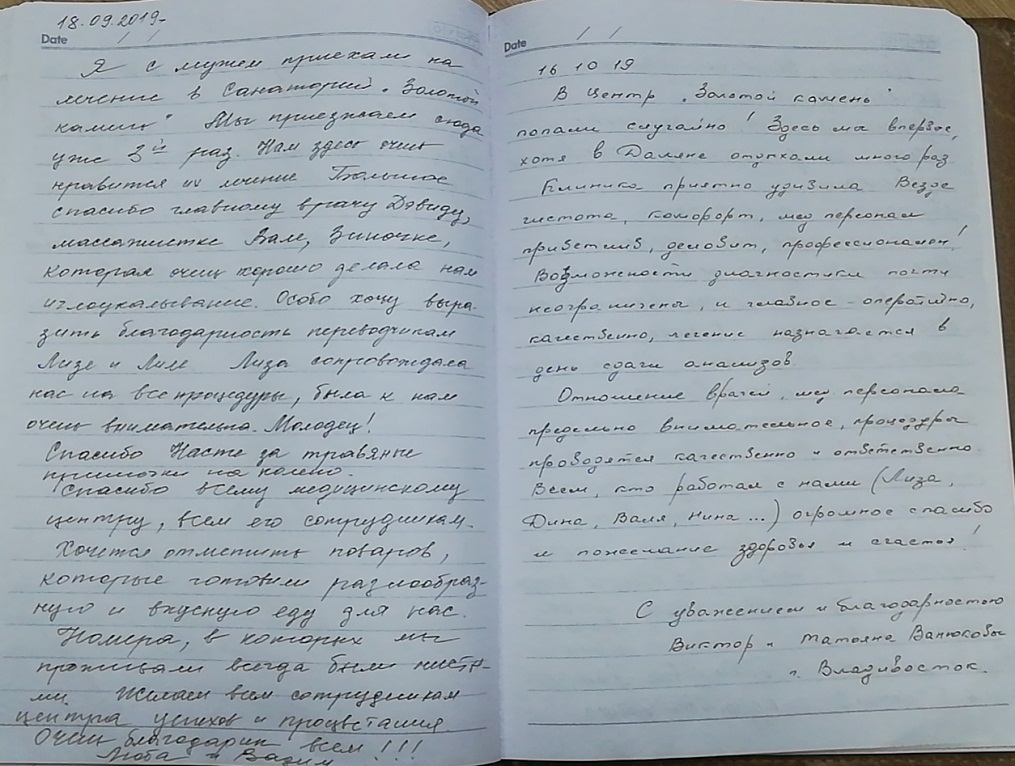 18.09.2019.
Date / /
Я с мужем приехали на
лечение в Санаторий "Золотой
камень" Мы приезжаем сюда
уже 3й раз. Нам здесь очень
нравится их лечение Большое
спасибо главному врачу Дэвиду,
массажистке Вале, Зиночке,
которая очень хорошо делала нам
иглоукалывание. Особо хочу выра-
зить благодарность переводчикам
Лизе и Лиле Лиза сопровождала
нас на все процедуры, была к нам
очень внимательна. Молодец!
Спасибо Насте за травяные
примочки на колено.
Спасибо всему медицинскому
центру, всем его сотрудникам.
Хочется отметить поваров,
которые готовили разнообраз
ную и вкусную еду для нас.
Номера, в которых мы
проживали всегда были чисты-
ми. Желаем всем сотрудникам
центра успехов и процветания.
Очень благодарим всем!!!
Люба и Вадим
Date / /
16 10 19
В центр "Золотой камень"
попали случайно! Здесь мы впервые,
хотя в Даляне отдыхали много раз
Клиника приятно удивила Везде
чистота, комфорт, мед персонал
приветлив, деловит, профессионален!
Возможности диагностики почти
неограничены, и главное - оперативно,
качественно, лечение назначается в
день сдачи анализов.
Отношение врачей, мед персонала
предельно внимательное, процедуры
проводятся качественно и ответственно.
Всем, кто работал с нами (Лиза,
Дина, Валя, Нина...) огромное спасибо
и пожелание здоровья и счастья!
С уважением и благодарностью
Виктор и Татьяна Ванюковы
г. Владивосток.